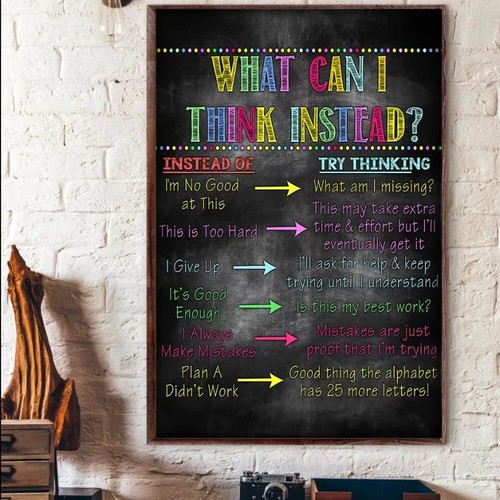 WHAT CAN I
THINK INSTEAD?
INSTEAD OF
TRY THINKING
I'm No Good
at This
What am I missing?
This is Too Hard
This may take extra
time & effort but I'll
eventually get it
I Give Up
I'll ask for help & keep
trying until I understand
It's Good
Enough
Is this my best work?
I Always
Make Mistakes
Mistakes are just
proof that I'm trying
Plan A
Didn't Work
Good thing the alphabet
has 25 more letters!